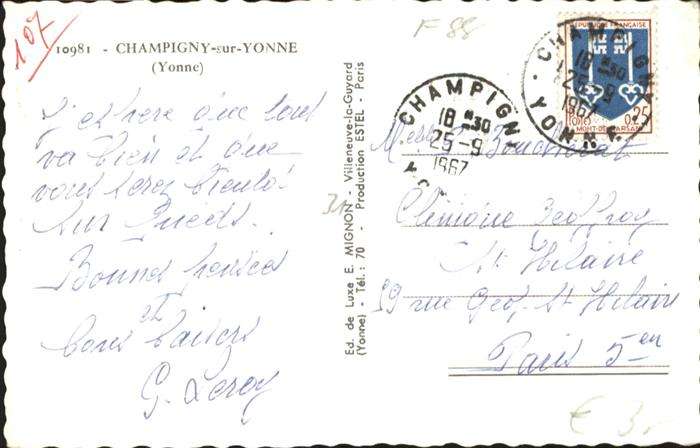 107
10981 - CHAMPIGNY-sur-YONNE
(Yonne)
J'espère que tout
va bien et que
vous serez bientôt
sur pieds.
Bonnes pensées
et
bons baisers
G. Leroy
Ed. de Luxe E. MIGNON - Villeneuve-la-Guyard
(Yonne) - Tél.: 70 - Production ESTEL - Paris
F 88
CHAMPIGNY
18 H30
25-9
1967
YONNE
CHAMPIGNY
18 H30
25-9
1967
YONNE
REPUBLIQUE FRANÇAISE
0,25
MONT-DE-MARSAN
Clinique Geoffroy
St Hilaire
59 rue Geof. St Hilaire
Paris 5en
€ 3,-